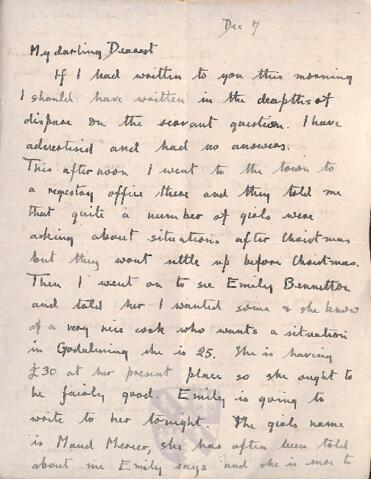 Dec 7
My darling Dearest
If I had written to you this morning
I should have written in the deapths of
dispare on the servant question. I have
advertised and had no answers.
This afternoon I went to the town to
a regestry office there and they told me
that quite a number of girls were
asking about situations after Christmas
but they wont settle up before Christmas.
Then I went on to see Emily Bennetton
and told her I wanted some & she knew
of a very nice cook who wants a situation
in Godalming she is 25. She is having
£30 at her present place so she ought to
be fairly good. Emily is going to
write to her tonight. The girls name
is Maud Mercer, she has often been told
about me Emily says and she is more to